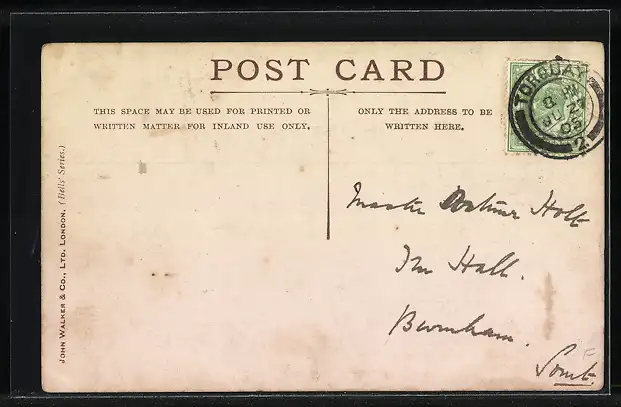 POST CARD
THIS SPACE MAY BE USED FOR PRINTED OR
WRITTEN MATTER FOR INLAND USE ONLY.
ONLY THE ADDRESS TO BE
WRITTEN HERE.
TORQUAY
JU 27
2
JOHN WALKER & CO., LTD. LONDON. (Bells' Series.)
Master Holt
Hall.
Burnham.
Somt.
F